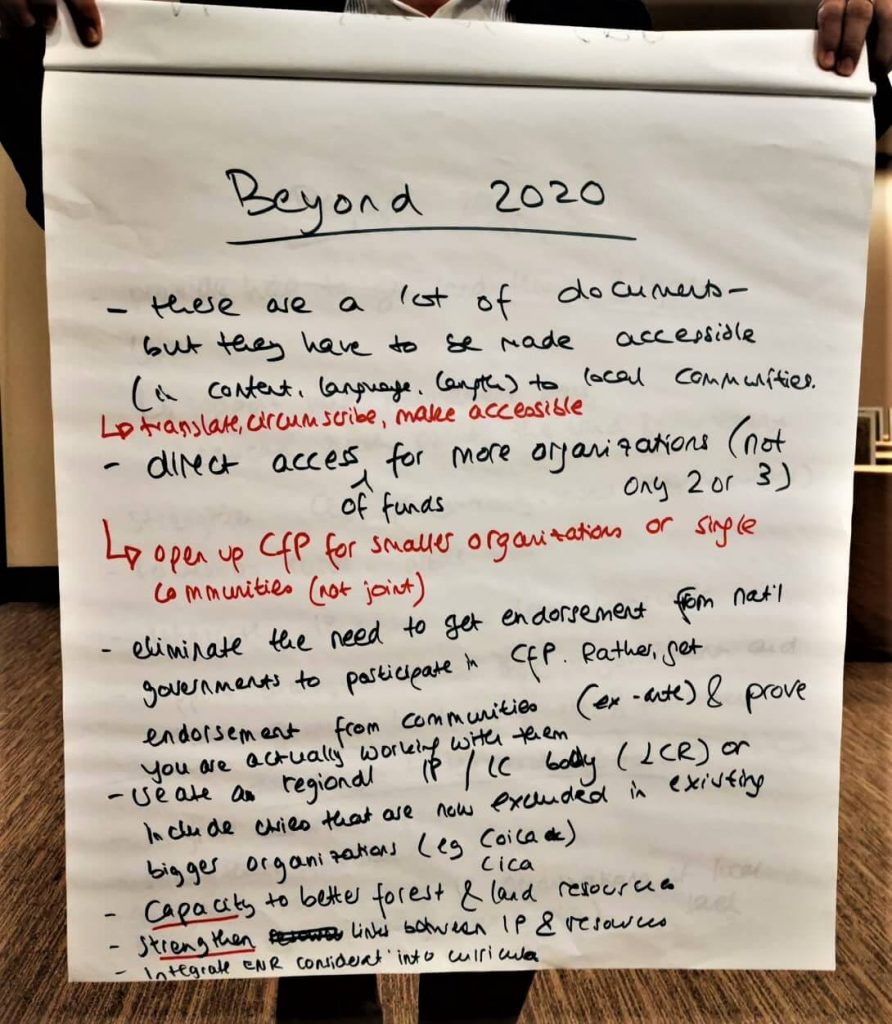 Beyond 2020
- these are a lot of documents -
but they have to be made accessible
(in content, language, length) to local communities.
↳ translate, circumscribe, make accessible
- direct access for more organizations (not
of funds ony 2 or 3)
↳ open up CfP for smaller organizations or single
communities (not joint)
- eliminate the need to get endorsement from nat'l
governments to participate in CfP. Rather, get
endorsement from communities (ex-ante) & prove
you are actually working with them
- create a regional IP / LC body (LCR) or
include that are now excluded in existing
bigger organizations (eg Coica
cica
- Capacity to better forest & land resources
- Strengthen links between IP & resources
- Integrate ENR considerat' into curricula